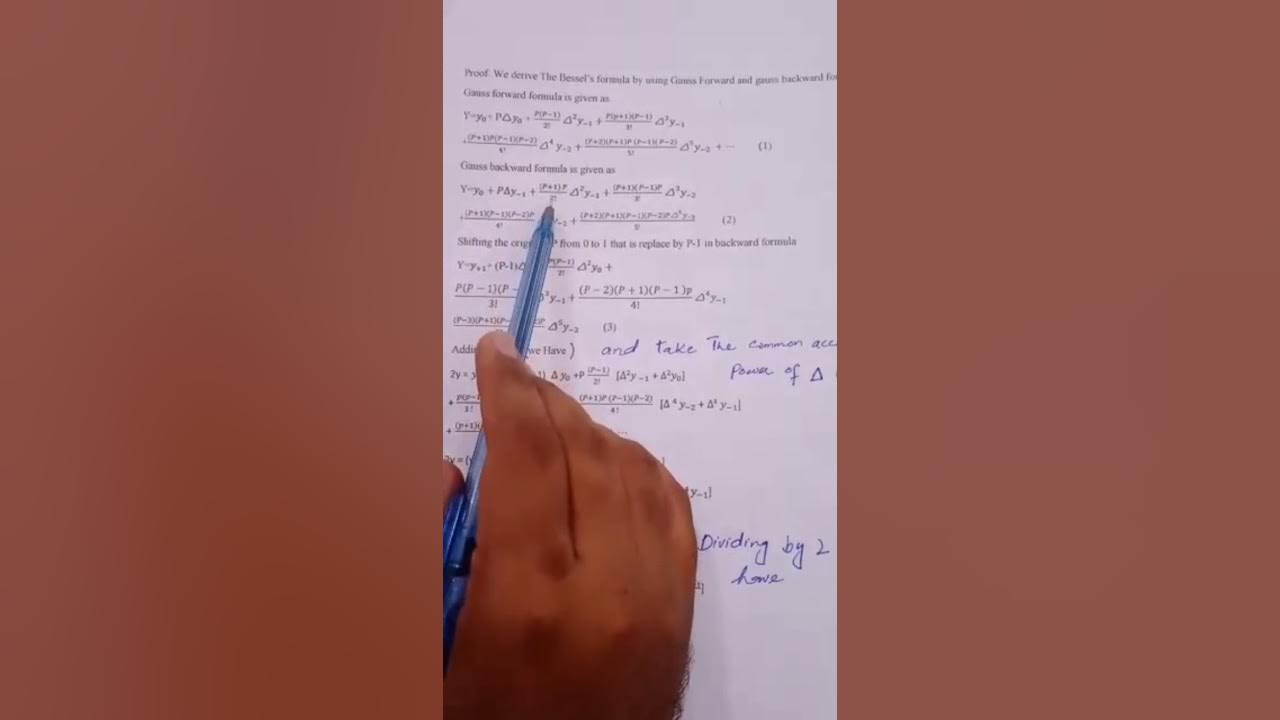 Proof. We derive The Bessel's formula by using Gauss Forward and gauss backward
Gauss forward formula is given as
Y=y₀+ PΔy₀ + P(P−1)/2! Δ²y₋₁ + P(p+1)(P−1)/3! Δ³y₋₁
+ (P+1)P(P−1)(P−2)/4! Δ⁴y₋₂ + (P+2)(P+1)P(P−1)(P−2)/5! Δ⁵y₋₂ + ⋯ (1)
Gauss backward formula is given as
Y=y₀ + PΔy₋₁ + (P+1)P/2! Δ²y₋₁ + (P+1)(P−1)P/3! Δ³y₋₂
+ (P+1)(P−1)(P−2)P/4! y₋₂ + (P+2)(P+1)(P−1)(P−2)P Δ⁵y₋₃/5! (2)
Shifting the from 0 to 1 that is replace by P-1 in backward formula
Y=y₊₁+ (P-1)Δ P(P−1)/2! Δ²y₀ +
P(P − 1)(P −/3! ³y₋₁ + (P − 2)(P + 1)(P − 1)p/4! Δ⁴y₋₁
(P−3)(P+1)(P− Δ⁵y₋₂ (3)
we Have ) and take The common
2y = Δy₀ +P (P−1)/2! [Δ²y₋₁ + Δ²y₀] Power of Δ
+ p(p−1/3! (P+1)P(P−1)(P−2)/4! [Δ⁴y₋₂ + Δ⁴y₋₁]
+ (p+1)( ...
y₋₁]
Dividing by 2
have